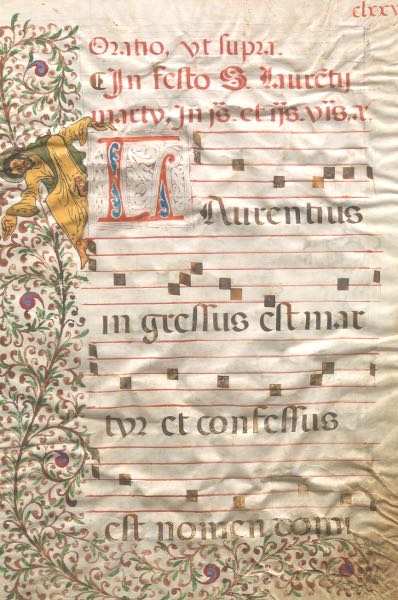 clxxv
Oratio, vt supra.
In festo S. Laurētij
marty, in ijs. et ijs. vīs. r.
Laurentius
in gressus est mar
tyr et confessus
est nomen domi